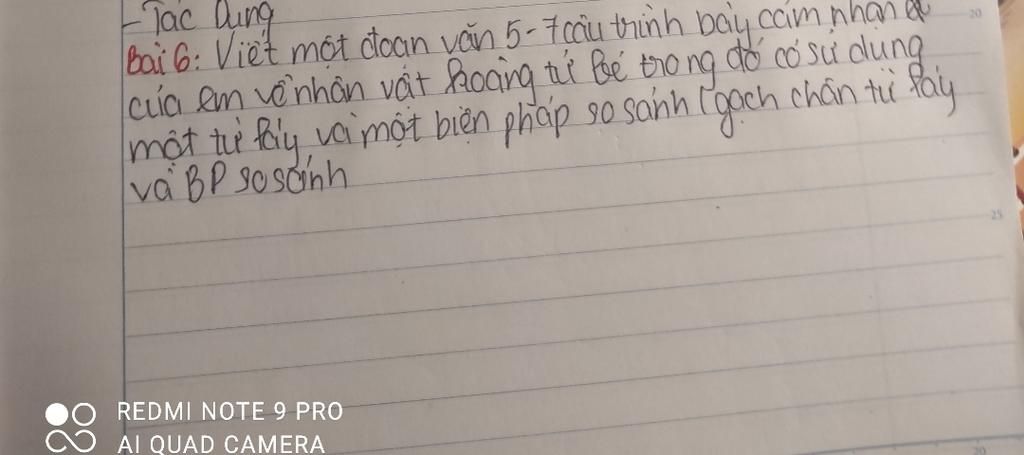 - Tác Dụng
Bài 6: Viết một đoạn văn 5-7 câu trình bày cảm nhận
của em về nhân vật Hoàng tử Bé trong đó có sử dụng
một từ láy và một biện pháp so sánh (gạch chân từ láy
và BP so sánh
20
25
REDMI NOTE 9 PRO
AI QUAD CAMERA